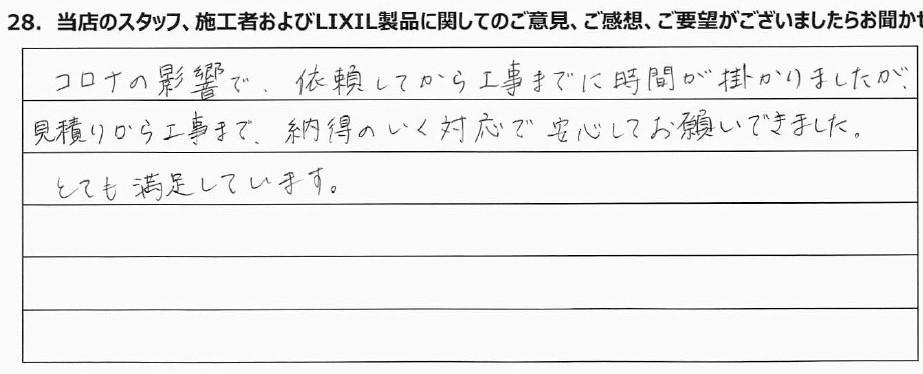 28. 当店のスタッフ、施工者およびLIXIL製品に関してのご意見、ご感想、ご要望がございましたらお聞かせ
コロナの影響で、依頼してから工事までに時間が掛かりましたが、
見積りから工事まで、納得のいく対応で安心してお願いできました。
とても満足しています。